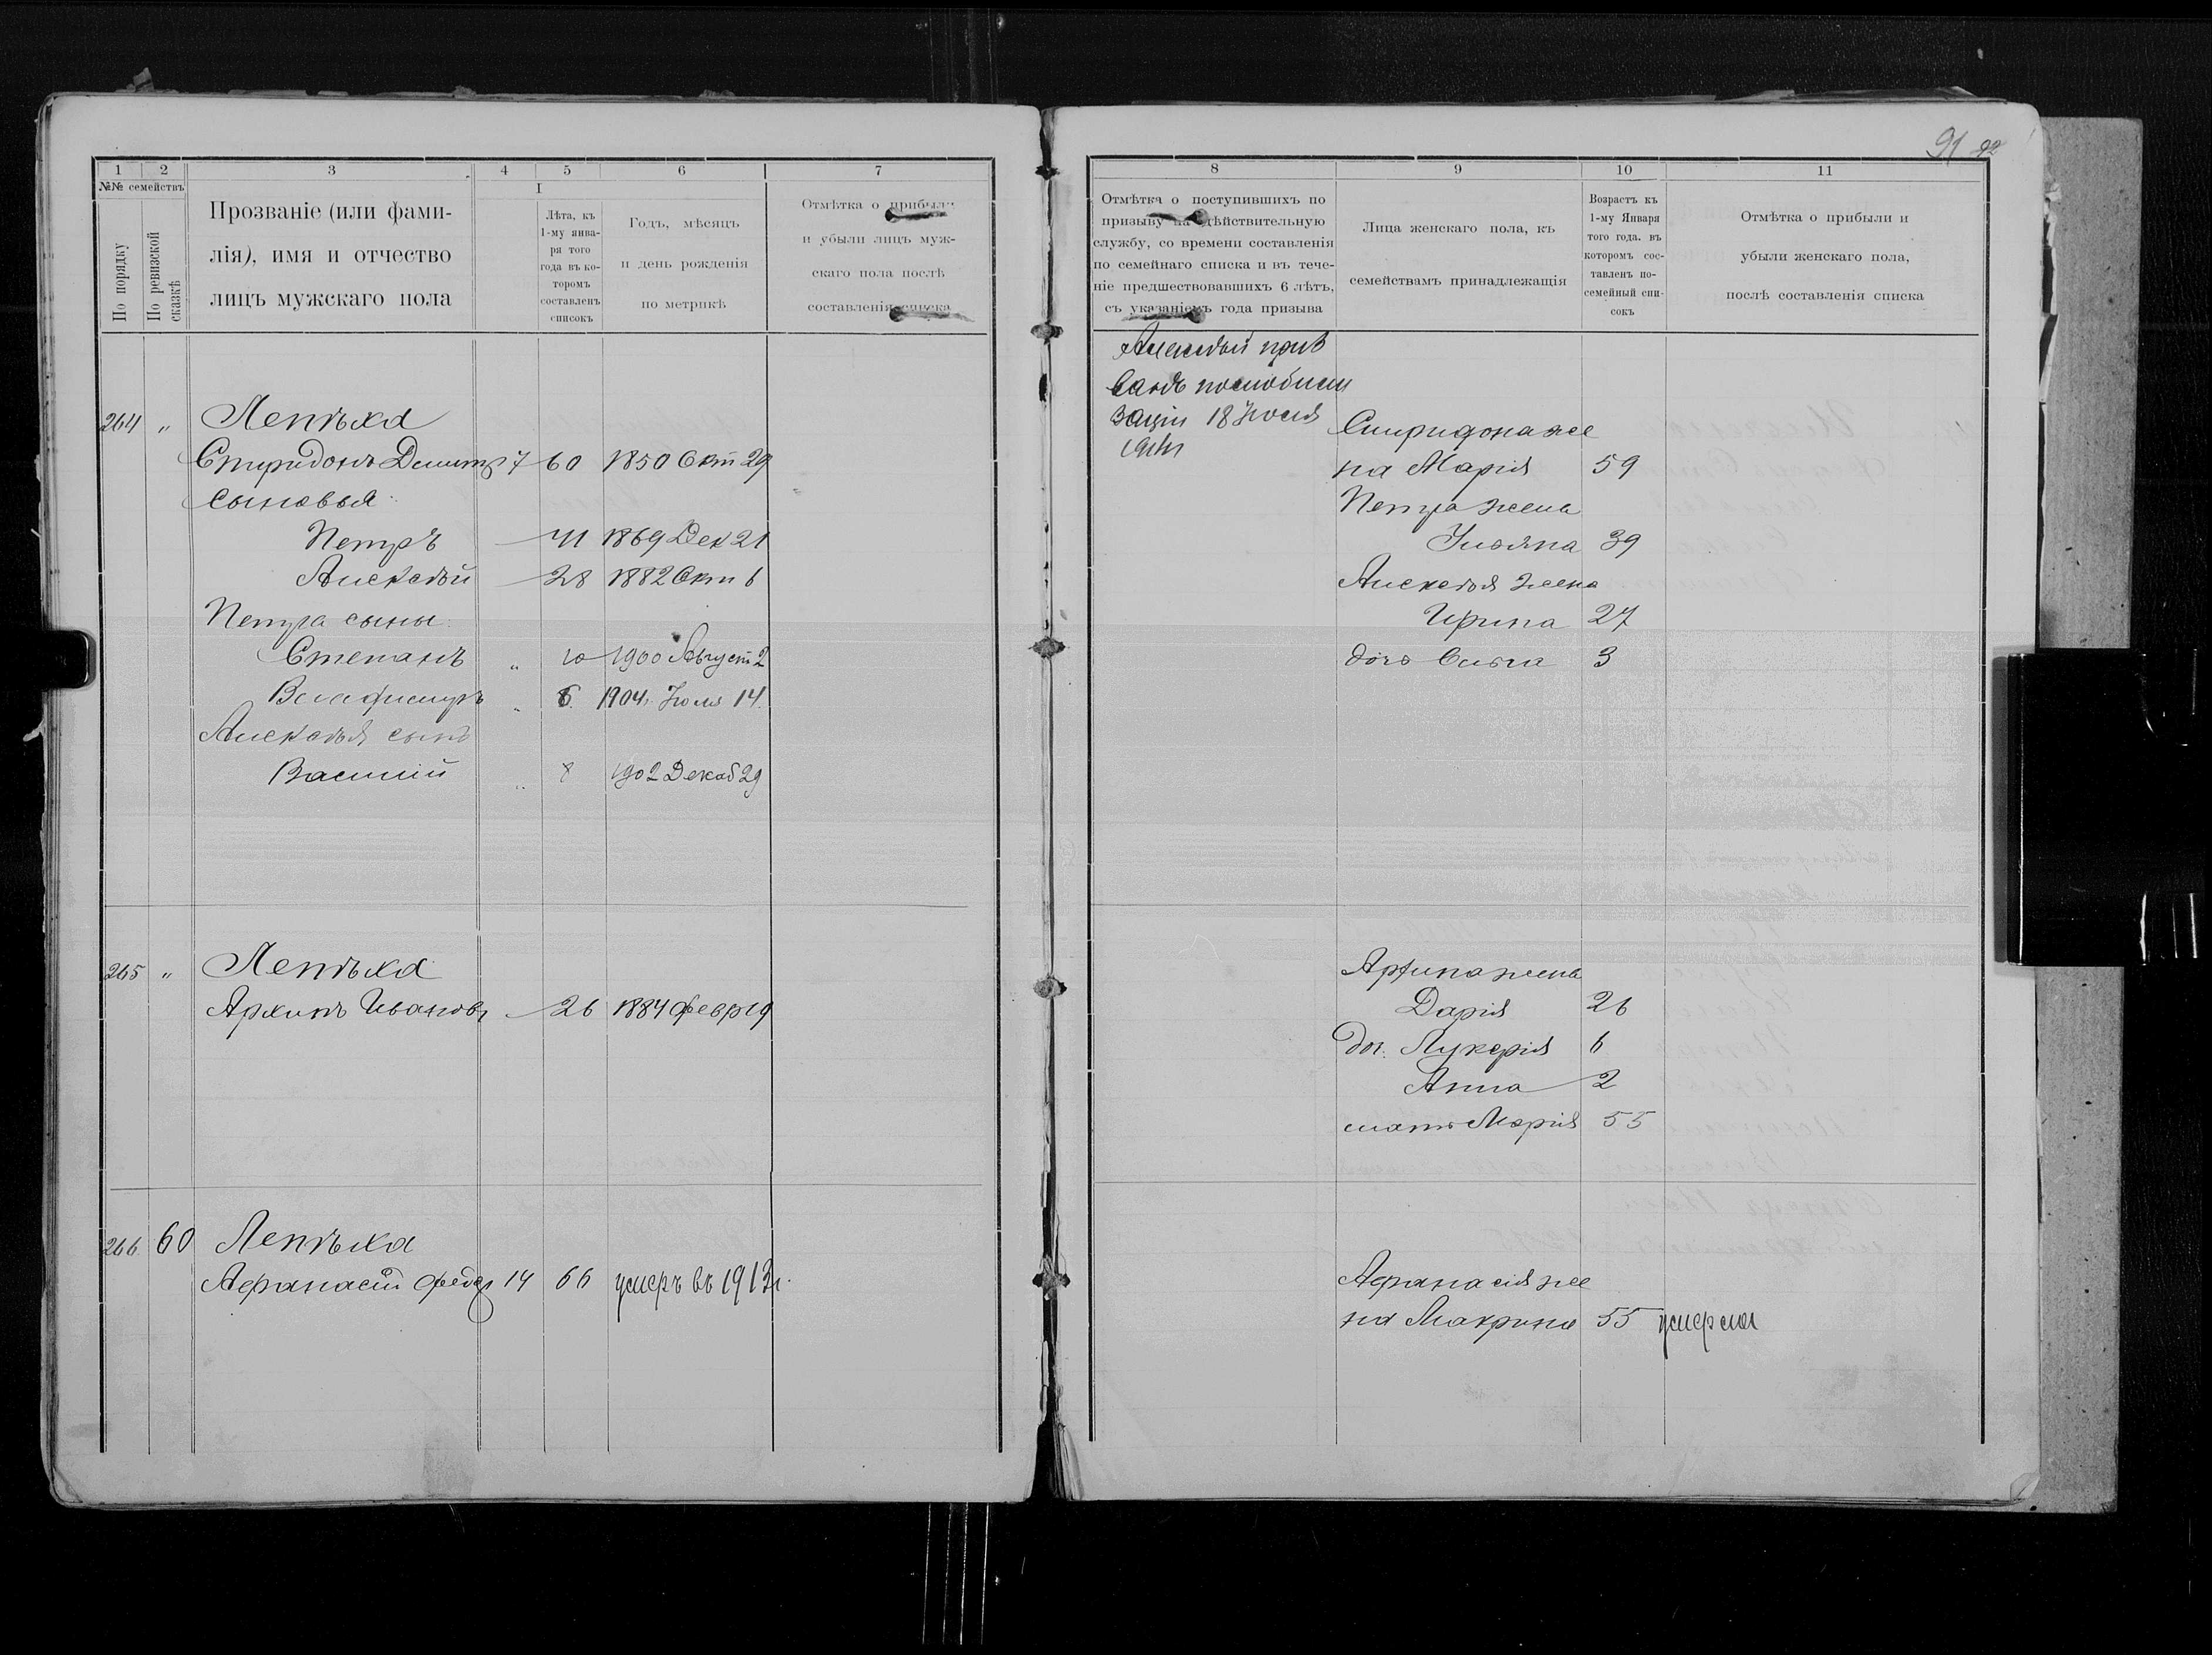 1 2 3 4 5 6 7
№№ семействъ
По порядку
По ревизской сказкѣ
Прозваніе (или фами-
лія), имя и отчество
лицъ мужскаго пола
I
Лѣта, къ
1-му янва-
ря того
года въ ко-
торомъ
составленъ
списокъ
Годъ, мѣсяцъ
и день рожденія
по метрикѣ
Отмѣтка о прибыли
и убыли лицъ муж-
скаго пола послѣ
составленія списка
264 " Лепѣха
Спиридонъ Димитр 7 60 1850 Окт 29
сыновья
Петръ 41 1869 Дек 21
Алексѣй 28 1882 Окт 6
Петра сыны
Степанъ " 10 1900 Август 2
Владимиръ " 6 1904 Іюля 14
Алексѣя сынъ
Василій " 8 1902 Декаб 29
265 " Лепѣха
Архипъ Иванов 26 1884 Февр 19
266 60 Лепѣха
Афанасій Федор 14 66 умеръ въ 1913 г.
91 92
8 9 10 11
Отмѣтка о поступившихъ по
призыву на дѣйствительную
службу, со времени составленія
по семейнаго списка и въ тече-
ніе предшествовавшихъ 6 лѣтъ,
съ указаніемъ года призыва
Лица женскаго пола, къ
семействамъ принадлежащія
Возрастъ къ
1-му Января
того года. въ
которомъ сос-
тавленъ по-
семейный спи-
сокъ
Отмѣтка о прибыли и
убыли женскаго пола,
послѣ составленія списка
Алексѣй приз
ванъ по мобили
заціи 18 Іюля
1914
Спиридона же
на Марія 59
Петра жена
Ульяна 39
Алексѣя жена
Ирина 27
дочь Ольга 3
Архипа жена
Дарія 26
доч. Лукерія 6
Анна 2
мать Марія 55
Афанасія же
на Макрина 55 умерла